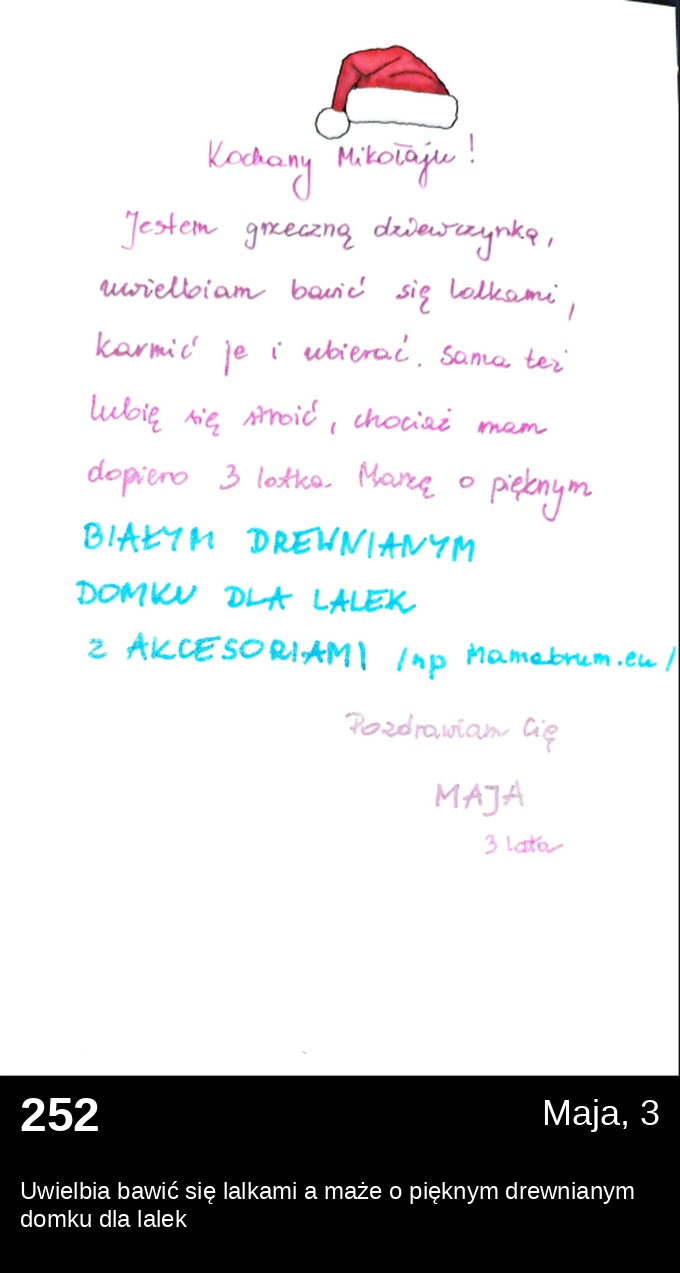 Kochany Mikołaju!
Jestem grzeczną dziewczynką,
uwielbiam bawić się lalkami,
karmić je i ubierać. Sama też
lubię się stroić, chociaż mam
dopiero 3 latka. Marzę o pięknym
BIAŁYM DREWNIANYM
DOMKU DLA LALEK
z AKCESORIAMI /np Mamabrum.eu/
Pozdrawiam Cię
MAJA
3 lata
252
Maja, 3
Uwielbia bawić się lalkami a maże o pięknym drewnianym
domku dla lalek